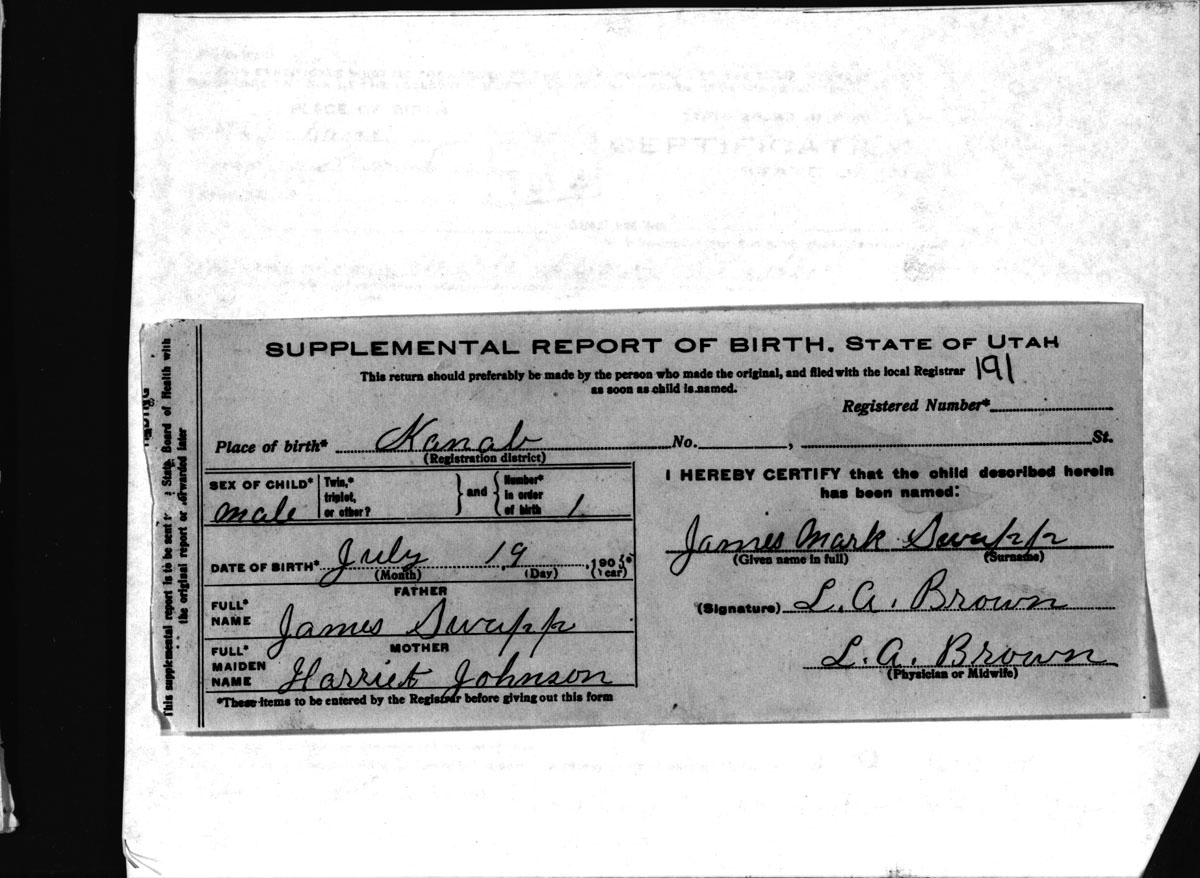 SUPPLEMENTAL REPORT OF BIRTH. STATE OF UTAH
This return should preferably be made by the person who made the original, and filed with the local Registrar
as soon as child is named.
191
Registered Number*
Place of birth* Kanab No. , St.
(Registration district)
SEX OF CHILD* male
Twin,* triplet, or other? } and { Number* in order of birth 1
DATE OF BIRTH* July 19, 190
(Month) (Day) (Year)
FATHER
FULL* NAME James Swapp
MOTHER
FULL* MAIDEN NAME Harriet Johnson
*These items to be entered by the Registrar before giving out this form
I HEREBY CERTIFY that the child described herein
has been named:
James Mark Swapp
(Given name in full) (Surname)
(Signature) L. A. Brown
L. A. Brown
(Physician or Midwife)
This supplemental report is to be sent State Board of Health with
the original report or forwarded later